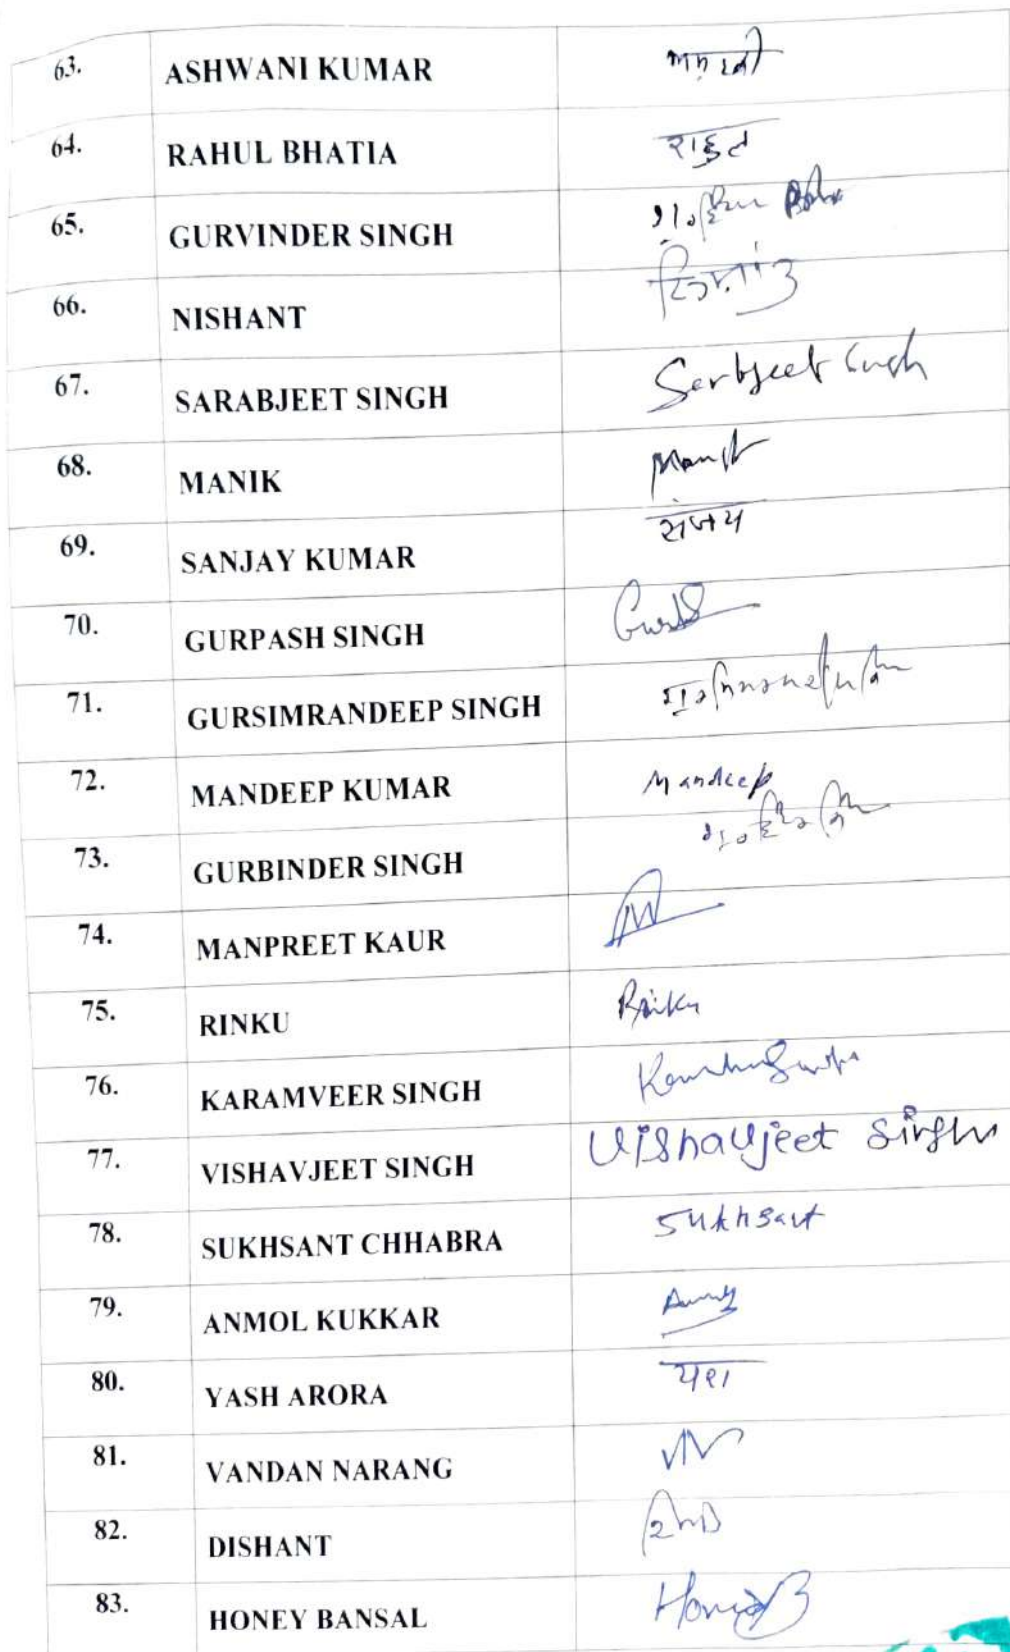 63. ASHWANI KUMAR
64. RAHUL BHATIA राहुल
65. GURVINDER SINGH
66. NISHANT
67. SARABJEET SINGH Sarbjeet Singh
68. MANIK Manik
69. SANJAY KUMAR संजय
70. GURPASH SINGH
71. GURSIMRANDEEP SINGH
72. MANDEEP KUMAR Mandeep
73. GURBINDER SINGH
74. MANPREET KAUR
75. RINKU Rinku
76. KARAMVEER SINGH
77. VISHAVJEET SINGH Vishavjeet Singh
78. SUKHSANT CHHABRA Sukhsant
79. ANMOL KUKKAR
80. YASH ARORA यश
81. VANDAN NARANG
82. DISHANT
83. HONEY BANSAL